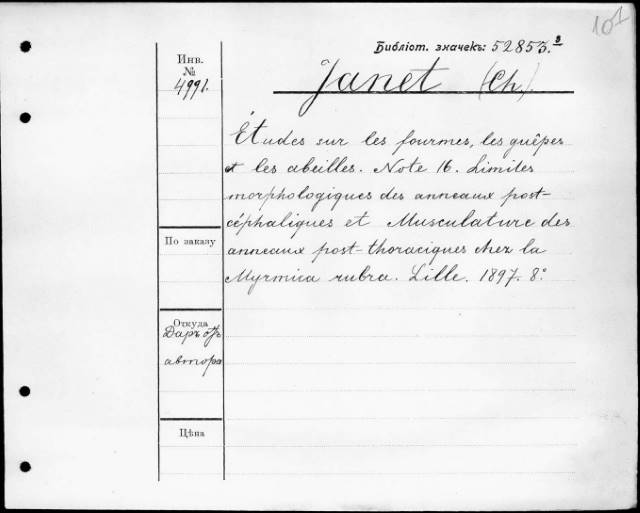 101
Библіот. значекъ: 52853.³
Инв.
№
4991.
Janet (Ch).
Études sur les fourmes, les guêpes
et les abeilles. Note 16. Limites
morphologiques des anneaux post-
céphaliques et Musculature des
anneaux post-thoraciques chez la
Myrmica rubra. Lille. 1897. 8°.
По заказу
Откуда
Даръ отъ
автора
Цѣна